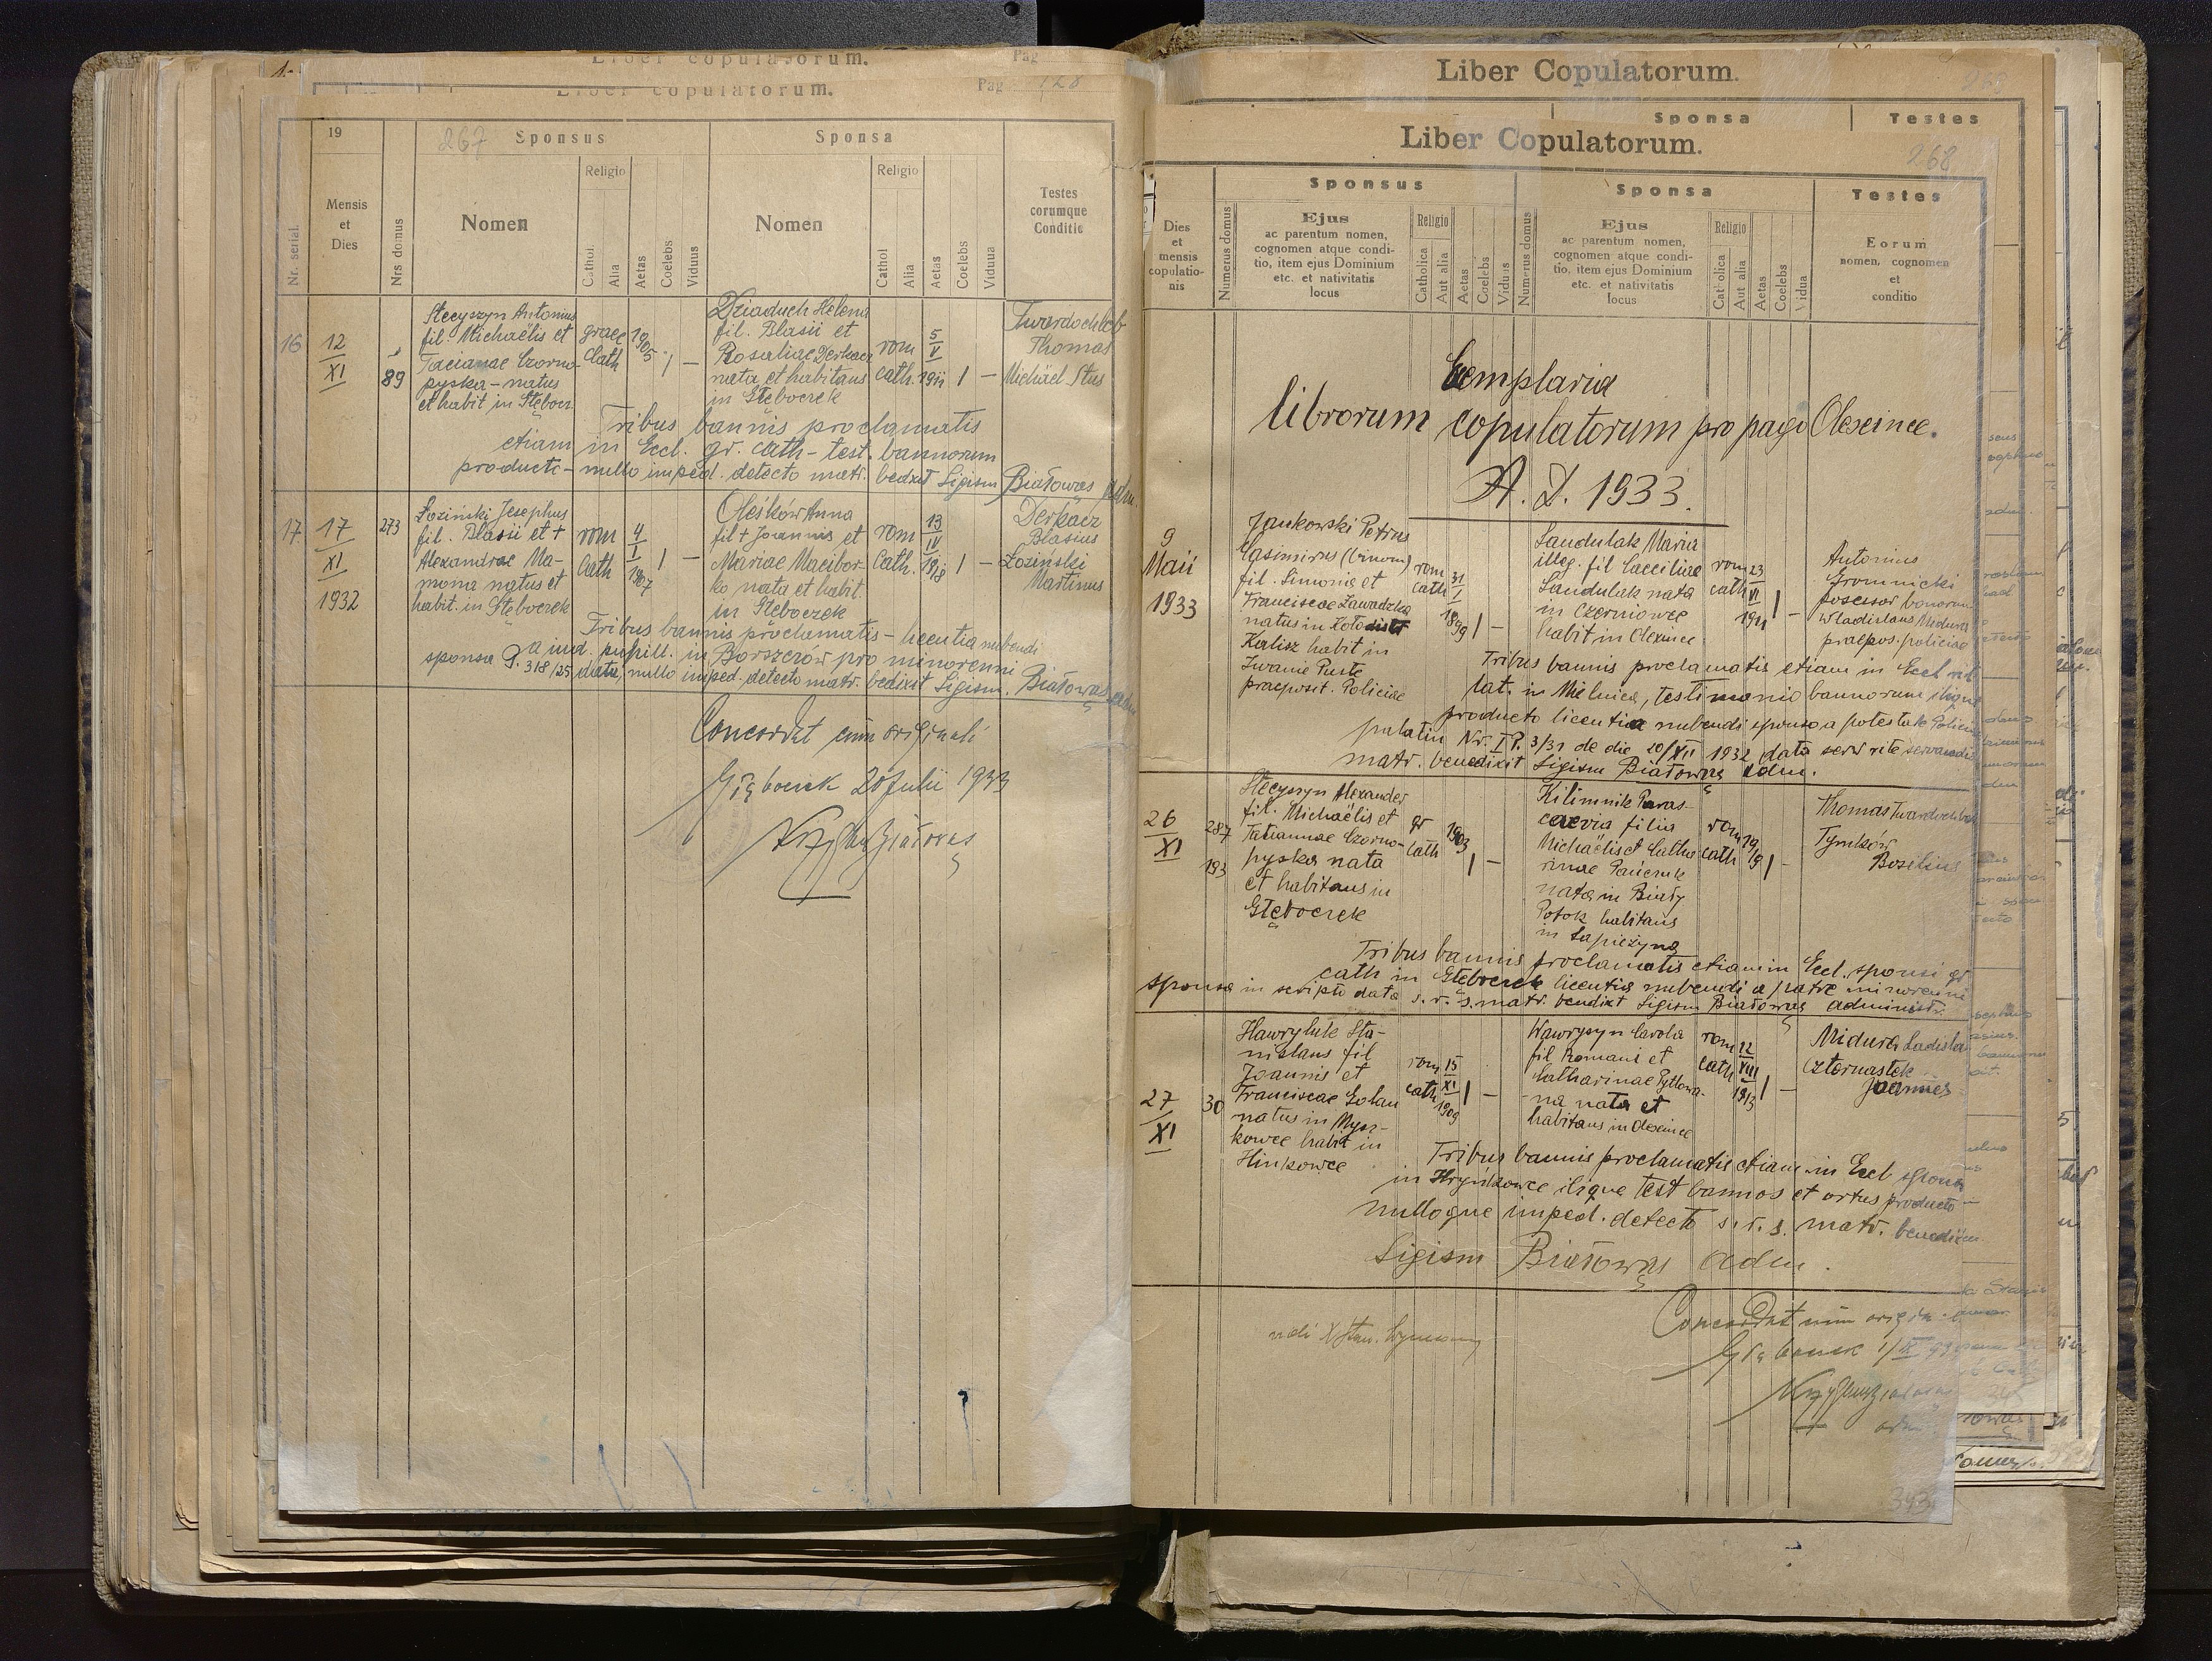 Liber copulatorum.
Pag
Liber copulatorum.
Pag 128
19
267
Sponsus
Sponsa
Nr. serial.
Mensis
et
Dies
Nrs domus
Nomen
Religio
Cathol
Alia
Aetas
Coelebs
Viduus
Nomen
Religio
Cathol
Alia
Aetas
Coelebs
Vidua
Testes
eorumque
Conditio
16
12
XI
89
Stecyszyn Antonius
fil. Michaëlis et
Tacianae Czorno-
pyska - natus
et habit in Głębocz
graec
Cath
1905
1
-
Dziaduch Helena
fil. Blasii et
Rosaliae Derkacz
nata et habitans
in Głęboczek
rom
cath.
5
V
1911
1
-
Twardochleb
Thomas
Michäel Stus
Tribus bannis proclamatis
etiam in Eccl. gr. cath - test. bannorum
producto - nullo imped. detecto matr. bedixit Sigism Białowąs adm.
17
17
XI
1932
273
Łoziński Josephus
fil. Blasii et +
Alexandrae Ma-
moma natus et
habit. in Głęboczek
rom
Cath
4
I
1907
1
-
Oleśków Anna
fil + Joannis et
Mariae Macibor-
ko nata et habit.
in Głęboczek
rom
Cath.
13
IV
1918
1
-
Derkacz
Blasius
Łoziński
Martinus
Tribus bannis proclamatis - licentia nubendi
a iud. pupill. in Borszczów pro minorenni
sponsa P. 318/25 data, nullo imped. detecto matr. bedixit Sigism. Białowąs adm
Concordat cum originali
Głęboczek 20 Julii 1933
Liber Copulatorum.
Sponsa
Testes
Liber Copulatorum.
268
Sponsus
Sponsa
Testes
Dies
et
mensis
copulatio-
nis
Numerus domus
Ejus
ac parentum nomen,
cognomen atque condi-
tio, item ejus Dominium
etc. et nativitatis
locus
Religio
Catholica
Aut alia
Aetas
Coelebs
Viduus
Numerus domus
Ejus
ac parentum nomen,
cognomen atque condi-
tio, item ejus Dominium
etc. et nativitatis
locus
Religio
Catholica
Aut alia
Aetas
Coelebs
Vidua
Eorum
nomen, cognomen
et
conditio
Exemplaria
librorum copulatorum pro pago Olexince.
A. D. 1933.
9
Maii
1933
Jankowski Petrus
Casimirus (binom)
fil. Simonis et
Franciscae Zawadzka
natus in
Kalisz habit in
Iwanie Puste
praeposit. Policiae
rom
cath
31
I
1899
1
-
Sandulak Maria
illeg. fil Caeciliae
Sandulak nata
in Czerniowce
habit in Olexince
rom
cath
23
VI
1911
1
-
Antonius
Gromnicki
possessor bonorum
Wladislaus Midura
praepos. policiae
Tribus bannis proclamatis etiam in Eccl rit
lat. in Mielnica, testimonio bannorum
producto licentia nubendi sponso a potestate Policiae
palatin Nr. I P. 3/31 de die 20/XII 1932 data serv rite servandis
matr. benedixit Sigism Białowąs adm.
26
XI
287
193
Stecyszyn Alexander
fil. Michaëlis et
Tatiannae Czorno-
pyska nata
et habitans in
Głęboczek
gr
cath
1903
1
-
Kilimnik Paras-
cevia filia
Michaëlis et Catha
rinae
nata in Biały
Potok habitans
in Łapieżyna
rom
cath
1919
1
-
Thomas Twardochleb
Tymków
Basilius
Tribus bannis proclamatis etiam in Eccl. sponsi gr
cath in Głęboczek licentia nubendi a patre minorenni
sponsa in scripto data s. r. s. matr. bendixt Sigism Białowąs administr.
27
XI
30
Hawryluk Sta-
nislaus fil
Joannis et
Franciscae Golan
natus in Mysz-
kowce habit in
Hinkowce
rom
cath
15
XI
1909
1
-
Wawrysyn Carola
fil Romani et
Catharinae Pytlowa-
-na nata et
habitans in Olexince
rom
cath
12
VIII
1913
1
-
Midura Ladisla
Czternastek
Joannes
Tribus bannis proclamatis etiam in Eccl sponsi
in Hryńkowce itique test bannos et ortus producto -
nulloque imped. detecto s. r. s. matr. benedixit
Sigism Białowąs adm.
Concordat cum origin
Głęboczek
393